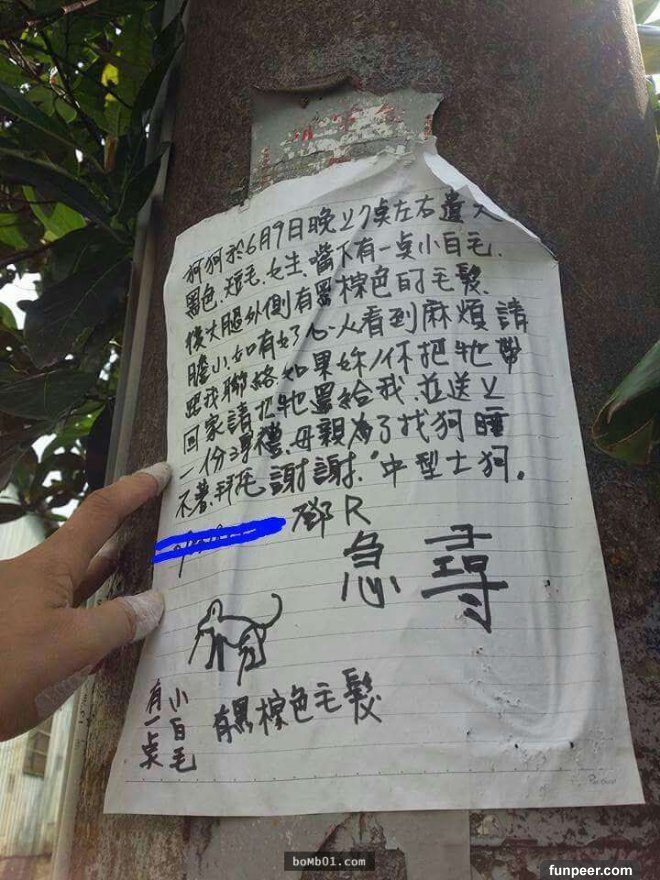 狗狗於6月9日晚上7奌左右遺失
黑色.短毛.女生.嘴下有一奌小白毛.
後大腿外側有黑棕色的毛髮.
膽小.如有好心人看到麻煩請
跟我聯絡.如果妳/你把牠帶
回家請把牠還給我.並送上
一份謝禮.母親為了找狗睡
不著.拜託謝謝."中型土狗。
鄧R
急尋
有一奌
小白毛
有黑棕色毛髮
boMb01.com
funpeer.com